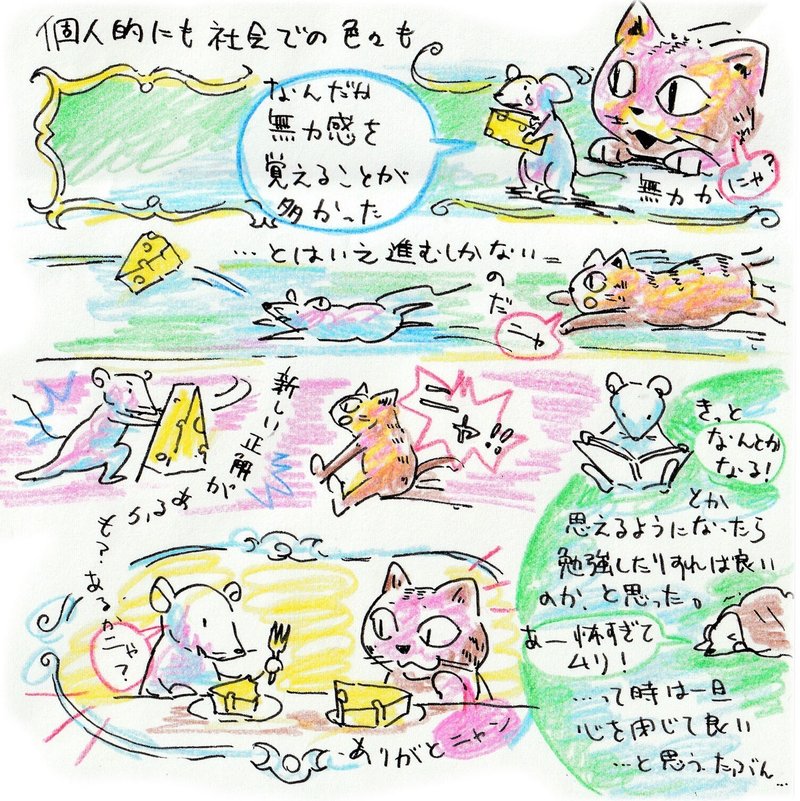 個人的にも社会での色々も
なんだね
無力感を
覚えることが
多かった
無力か
にゃ?
…とはいえ進むしかない
のだ
ニャ
新しい正解
が
あるか
も?
あるかニャ?
ニャ!!
きっと
なんとか
なる!
とか
思えるようになったら
勉強したりすれば良い
のか、と思った。
あー怖すぎて
ムリ!
…って時は一旦
心を閉じて良い
…と思う、たぶん…
ありがと
ニャン